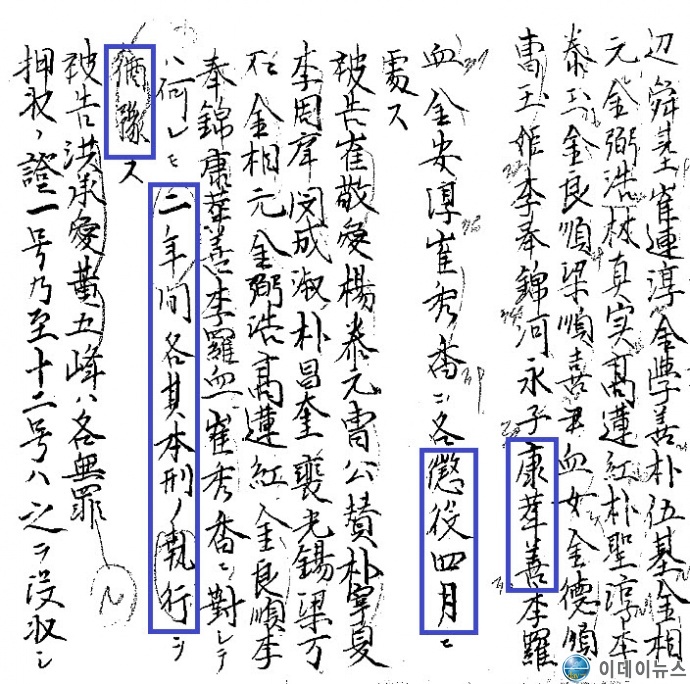 辺舜基崔連淳金學善朴伍基金相
元金弼浩林真実高蓮紅朴聖淳李
泰三金良順梁順喜尹血女金德順
曺玉姫李奉錦河永子康華善李羅
血金安淳崔秀香ニ各懲役四月ニ
處ス
被告崔敬愛楊泰元曺公賛朴寧夏
李周房閔成淑朴昌奎裵光錫梁万
石金相元金弼浩高蓮紅金良順李
奉錦康華善李羅血崔秀香ニ對シテ
ハ何レモ二年間各其本刑ノ執行ヲ
猶豫ス
被告洪承愛黃五峰ハ各無罪
押收ノ證一号乃至十二号ハ之ヲ没收シ
이데이뉴스